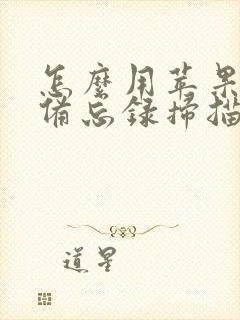 怎麽用苹果
備忘録掃描
道星